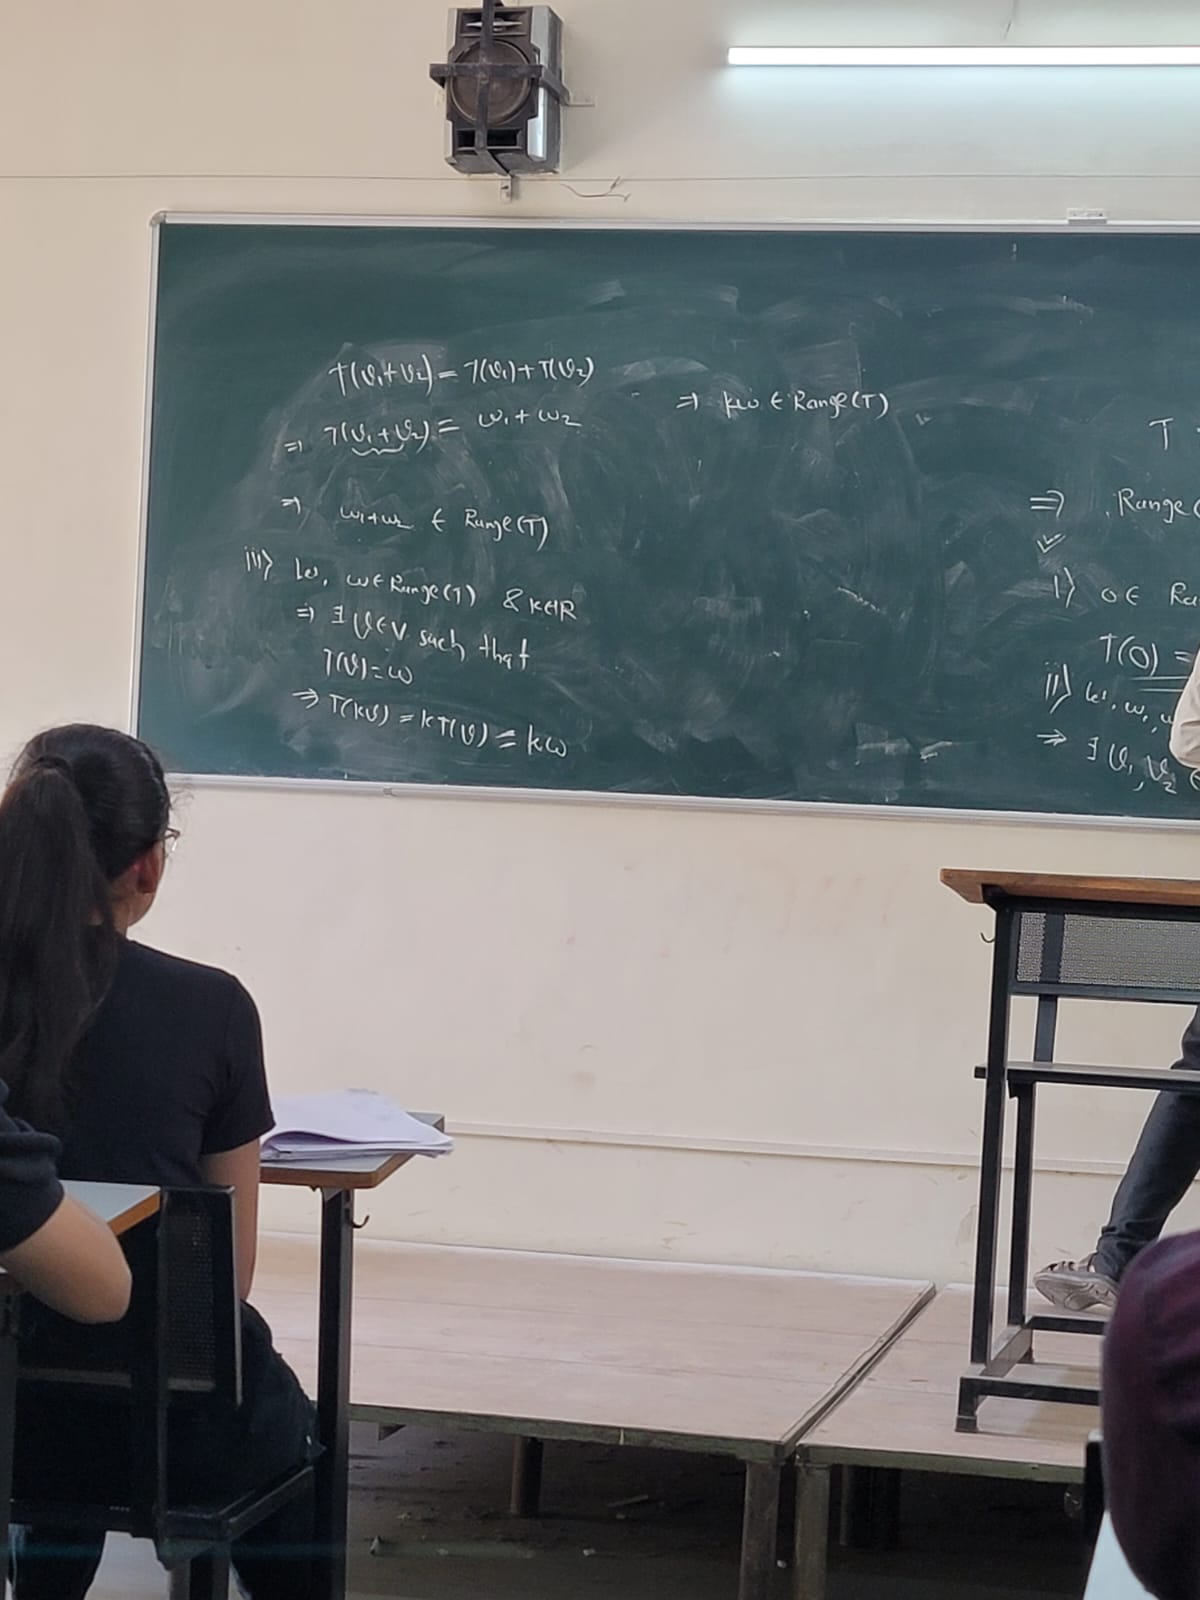 T(v₁+v₂) = T(v₁)+T(v₂)
⇒ T(v₁+v₂) = ω₁+ω₂
⇒ ω₁+ω₂ ∈ Range(T)
iii) let, ω∈Range(T) & k∈IR
⇒ ∃ v∈V such that
T(v)=ω
⇒ T(kv) = kT(v) = kω
⇒ kω ∈ Range(T)
T
⇒ Range(
i) 0∈ Ra
T(0) =
ii) let, ω₁
⇒ ∃ v₁, v₂ ∈